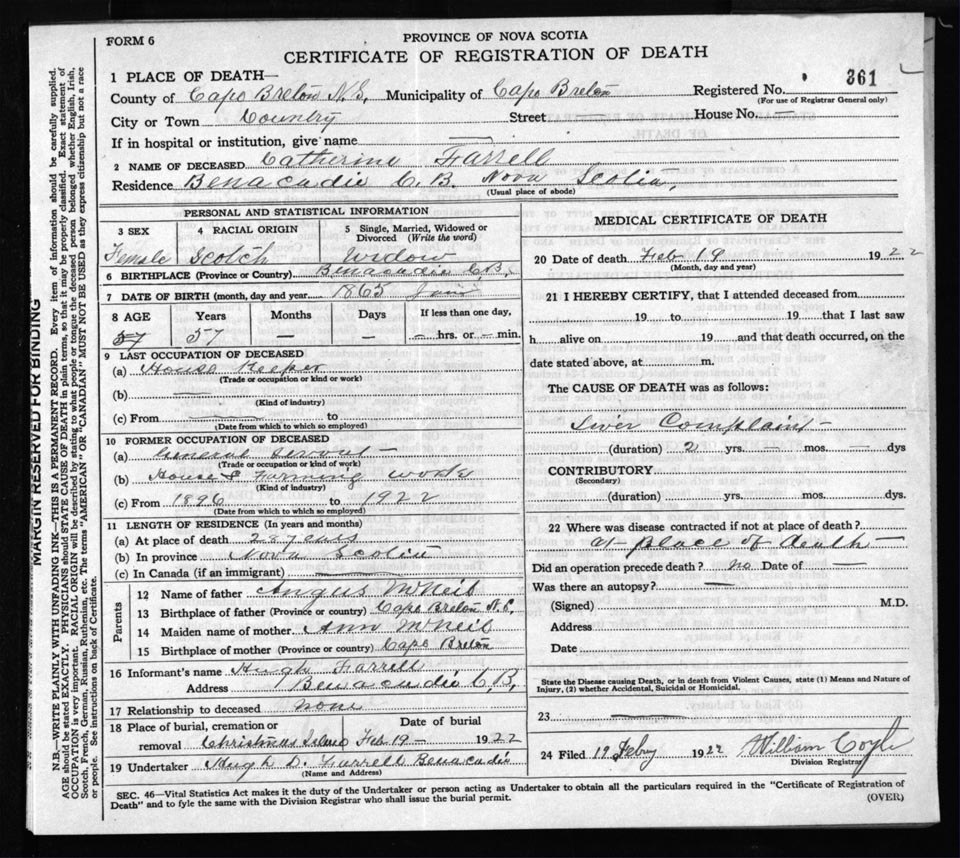 FORM 6
PROVINCE OF NOVA SCOTIA
CERTIFICATE OF REGISTRATION OF DEATH
1 PLACE OF DEATH—
Registered No. 361
(For use of Registrar General only)
County of Cape Breton N.S. Municipality of Cape Breton
City or Town Country Street — House No. —
If in hospital or institution, give name —
2 NAME OF DECEASED Catherine Farrell
Residence Benacadie C.B. Nova Scotia,
(Usual place of abode)
PERSONAL AND STATISTICAL INFORMATION
3 SEX 4 RACIAL ORIGIN 5 Single, Married, Widowed or Divorced (Write the word)
Female Scotch Widow
6 BIRTHPLACE (Province or Country) Benacadie C.B.
7 DATE OF BIRTH (month, day and year) 1865
8 AGE Years Months Days If less than one day,
57 57 — — — hrs. or — min.
9 LAST OCCUPATION OF DECEASED
(a) House Keeper
(Trade or occupation or kind or work)
(b) —
(Kind of industry)
(c) From — to
(Date from which to which so employed)
10 FORMER OCCUPATION OF DECEASED
(a) General Servant —
(Trade or occupation or kind of work)
(b) House & Farming work
(Kind of industry)
(c) From 1896 to 1922
(Date from which to which so employed)
11 LENGTH OF RESIDENCE (In years and months)
(a) At place of death 28 years
(b) In province Nova Scotia
(c) In Canada (if an immigrant) —
Parents
12 Name of father Angus McNeil
13 Birthplace of father (Province or country) Cape Breton N.S.
14 Maiden name of mother Ann McNeil
15 Birthplace of mother (Province or country) Cape Breton
16 Informant's name Hugh Farrell
Address Benacadie C.B.
17 Relationship to deceased none
18 Place of burial, cremation or removal Christmas Island Date of burial Feb 19 — 1922
19 Undertaker Hugh D. Farrell Benacadie
(Name and Address)
MEDICAL CERTIFICATE OF DEATH
20 Date of death Feb 19 1922
(Month, day and year)
21 I HEREBY CERTIFY, that I attended deceased from
19 to 19 that I last saw
h alive on 19 and that death occurred, on the
date stated above, at m.
The CAUSE OF DEATH was as follows:
Liver Complaint —
(duration) 2 yrs. — mos. — dys
CONTRIBUTORY
(Secondary)
(duration) yrs. mos. dys.
22 Where was disease contracted if not at place of death?
at place of death —
Did an operation precede death? no Date of —
Was there an autopsy? —
(Signed) M.D.
Address
Date
State the Disease causing Death, or in death from Violent Causes, state (1) Means and Nature of
Injury, (2) whether Accidental, Suicidal or Homicidal.
23 —
24 Filed 19 Febry 1922 William Coyle
Division Registrar
SEC. 46—Vital Statistics Act makes it the duty of the Undertaker or person acting as Undertaker to obtain all the particulars required in the "Certificate of Registration of
Death" and to fyle the same with the Division Registrar who shall issue the burial permit.
(OVER)
MARGIN RESERVED FOR BINDING
N.B.—WRITE PLAINLY WITH UNFADING INK—THIS IS A PERMANENT RECORD. Every item of information should be carefully supplied.
AGE should be stated EXACTLY. PHYSICIANS should STATE CAUSE OF DEATH in plain terms, so that it may be properly classified. Exact statement of
OCCUPATION is very important. RACIAL ORIGIN will be described by stating to what people or tongue the deceased person belonged whether English, Irish,
Scotch, French, German, Russian, Ruthenian, etc. The terms "AMERICAN" OR "CANADIAN" MUST NOT BE USED as they express citizenship but not a race
or people. See instructions on back of Certificate.